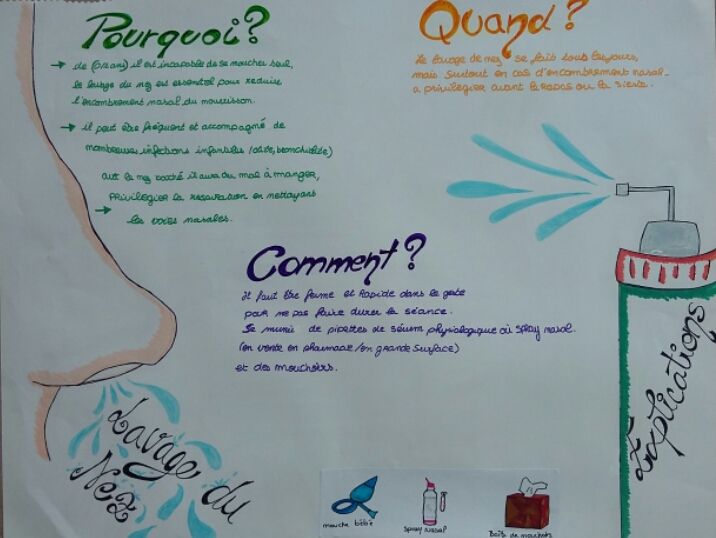 Pourquoi?
→ de (0/2 ans) il est incapable de se moucher seul,
le lavage du nez est essentiel pour reduire
l'encombrement nasal du nourrisson.
→ il peut être fréquent et accompagné de
nombreuses infections infantiles (otite, bronchiolite)
avec le nez bouché il aura du mal à manger,
→ PRiviLEGIER la respiration en nettoyant
les voies nasales.
Quand ?
Le lavage de nez se fait tous les jours,
mais surtout en cas d'encombrement nasal.
a privilegier avant le Repas ou la sieste.
Comment ?
Il faut être ferme et Rapide dans le geste
pour ne pas faire durer la séance.
Se munir de pipettes de sérum physiologique où spray nasal.
(en vente en pharmacie /en grande surface)
et des mouchoirs.
Explications
Lavage du
Nez
mouche bébé
spray nasal
Boîte de mouchoirs